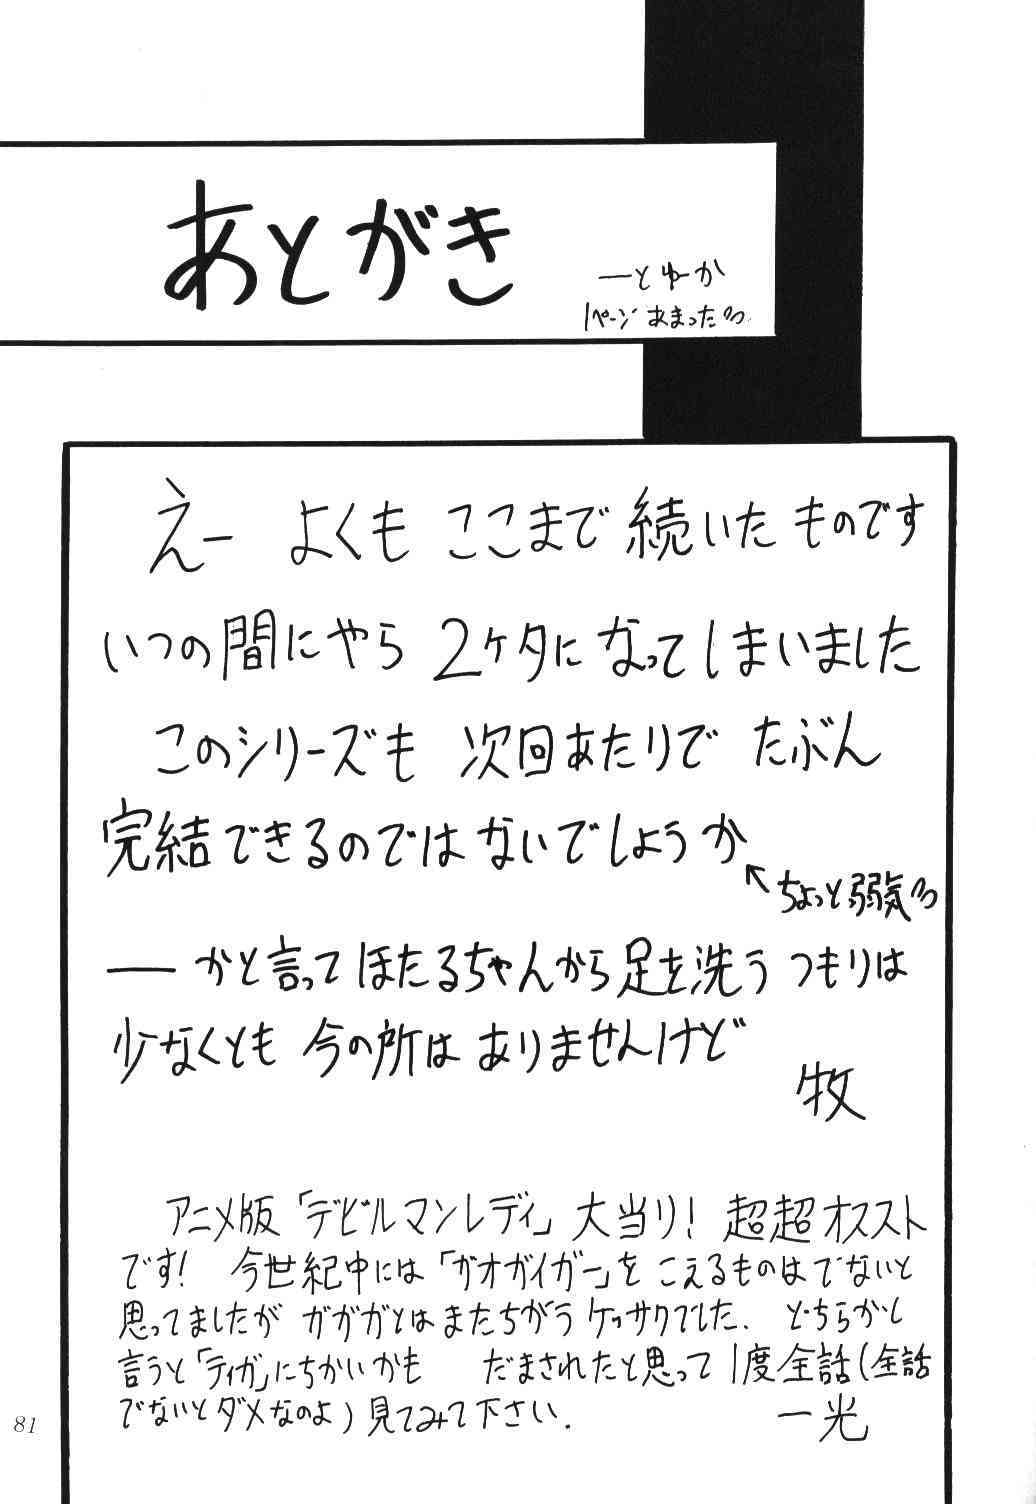 あとがき
—とゆーか
1ページあまった
えー よくも ここまで 続いた ものです
いつの間にやら 2ケタに なってしまいました
このシリーズも 次回あたりで たぶん
完結できるのでは ないでしょうか
←ちょっと弱気
—かと言って ほたるちゃんから 足を洗う つもりは
少なくとも 今の所は ありませんけど
牧
アニメ版「デビルマンレディ」大当り! 超超オススト
です! 今世紀中には「ガオガイガー」を こえるものはでないと
思ってましたが ガガガとはまたちがう ケッサクでした. どちらかし
言うと「ティガ」にちかいかも だまされたと思って 1度全話(全話
でないとダメなのよ)見てみて下さい.
一光
81